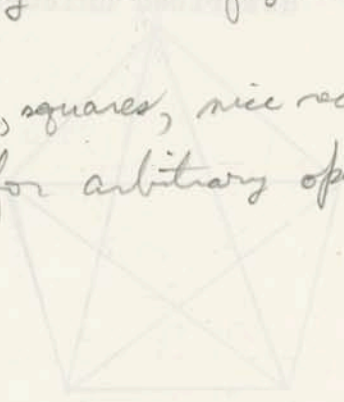 , squares, nice rec
for arbitrary op